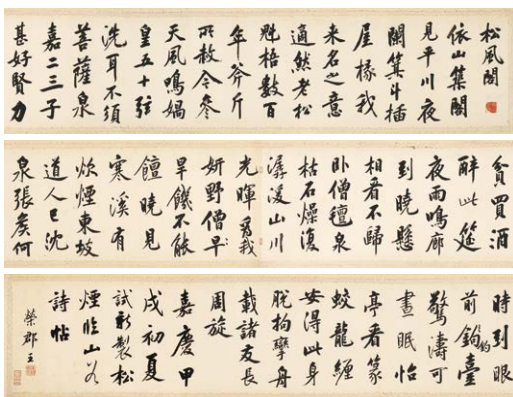 松風閣
依山築閣
見平川夜
闌箕斗插
屋椽我
来名之意
適然老松
魁梧數百
年斧斤
所赦今參
天風鳴媧
皇五十弦
洗耳不須
菩薩泉
嘉二三子
甚好賢力
貧買酒
醉此筵
夜雨鳴廊
到曉懸
相看不歸
卧僧氊泉
枯石燥復
潺湲山川
光暉爲我
妍野僧早
旱饑不能
饘曉見
寒溪有
炊煙東坡
道人已沈
泉張矦何
時到眼
前釣臺
驚濤可
晝眠怡
亭看篆
蛟龍纏
安得此身
脫拘攣舟
載諸友長
周旋
嘉慶甲
戌初夏
試新製松
煙臨山谷
詩帖
榮郡王